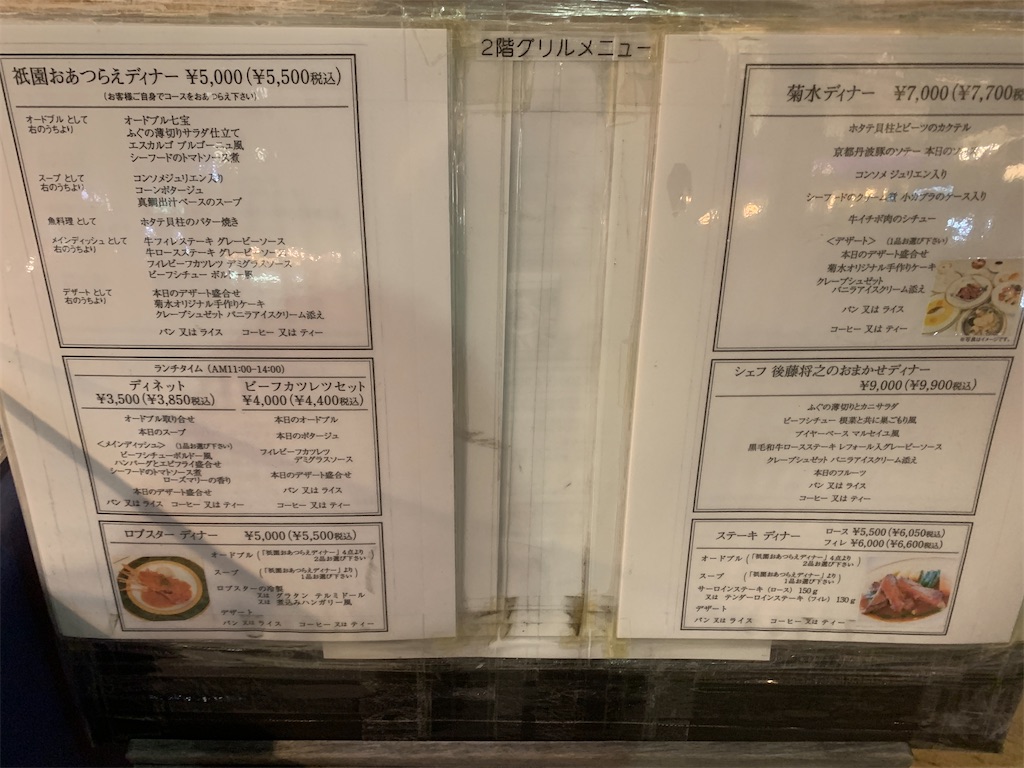 2階グリルメニュー
祇園おあつらえディナー ¥5,000(¥5,500税込)
(お客様ご自身でコースをおあつらえ下さい)
オードブル として
右のうちより
オードブル七宝
ふぐの薄切りサラダ仕立て
エスカルゴ ブルゴーニュ風
シーフードのトマトソース煮
スープ として
右のうちより
コンソメジュリエン入り
コーンポタージュ
真鯛出汁ベースのスープ
魚料理 として
ホタテ貝柱のバター焼き
メインディッシュ として
右のうちより
牛フィレステーキ グレービーソース
牛ロースステーキ グレービーソース
フィレビーフカツレツ デミグラスソース
ビーフシチュー ボルドー風
デザート として
右のうちより
本日のデザート盛合せ
菊水オリジナル手作りケーキ
クレープシュゼット バニラアイスクリーム添え
パン 又は ライス コーヒー 又は ティー
ランチタイム (AM11:00-14:00)
ディネット
¥3,500(¥3,850税込)
オードブル取り合せ
本日のスープ
<メインディッシュ> (1品お選び下さい)
ビーフシチューボルドー風
ハンバーグとエビフライ盛合せ
シーフードのトマトソース煮
ローズマリーの香り
本日のデザート盛合せ
パン 又は ライス コーヒー 又は ティー
ビーフカツレツセット
¥4,000(¥4,400税込)
本日のオードブル
本日のポタージュ
フィレビーフカツレツ
デミグラスソース
本日のデザート盛合せ
パン 又は ライス
コーヒー 又は ティー
ロブスター ディナー ¥5,000(¥5,500税込)
オードブル (「祇園おあつらえディナー」4点より
2品お選び下さい)
スープ (「祇園おあつらえディナー」より
1品お選び下さい)
ロブスターの
又は グラタン テルミドール
又は 煮込みハンガリー風
デザート
パン 又は ライス コーヒー 又は ティー
菊水ディナー ¥7,000(¥7,700税
ホタテ貝柱とビーツのカクテル
京都丹波豚のソテー 本日のソース
コンソメ ジュリエン入り
シーフードのクリーム 小カブラのケース入り
牛イチボ肉のシチュー
<デザート> (1品お選び下さい)
本日のデザート盛合せ
菊水オリジナル手作りケーキ
クレープシュゼット
バニラアイスクリーム添え
パン 又は ライス
コーヒー 又は ティー
※写真はイメージです。
シェフ 後藤将之のおまかせディナー
¥9,000(¥9,900税込)
ふぐの薄切りとカニサラダ
ビーフシチュー 根菜と共に巣ごもり風
ブイヤーベース マルセイユ風
黒毛和牛ロースステーキ レフォール入グレービーソース
クレープシュゼット バニラアイスクリーム添え
本日のフルーツ
パン 又は ライス
コーヒー 又は ティー
ステーキ ディナー
ロース ¥5,500(¥6,050税込)
フィレ ¥6,000(¥6,600税込)
オードブル (「祇園おあつらえディナー」4点より
2品お選び下さい)
スープ (「祇園おあつらえディナー」より
1品お選び下さい)
サーロインステーキ (ロース) 150g
又は テンダーロインステーキ (フィレ) 130g
デザート
パン 又は ライス コーヒー 又は ティー